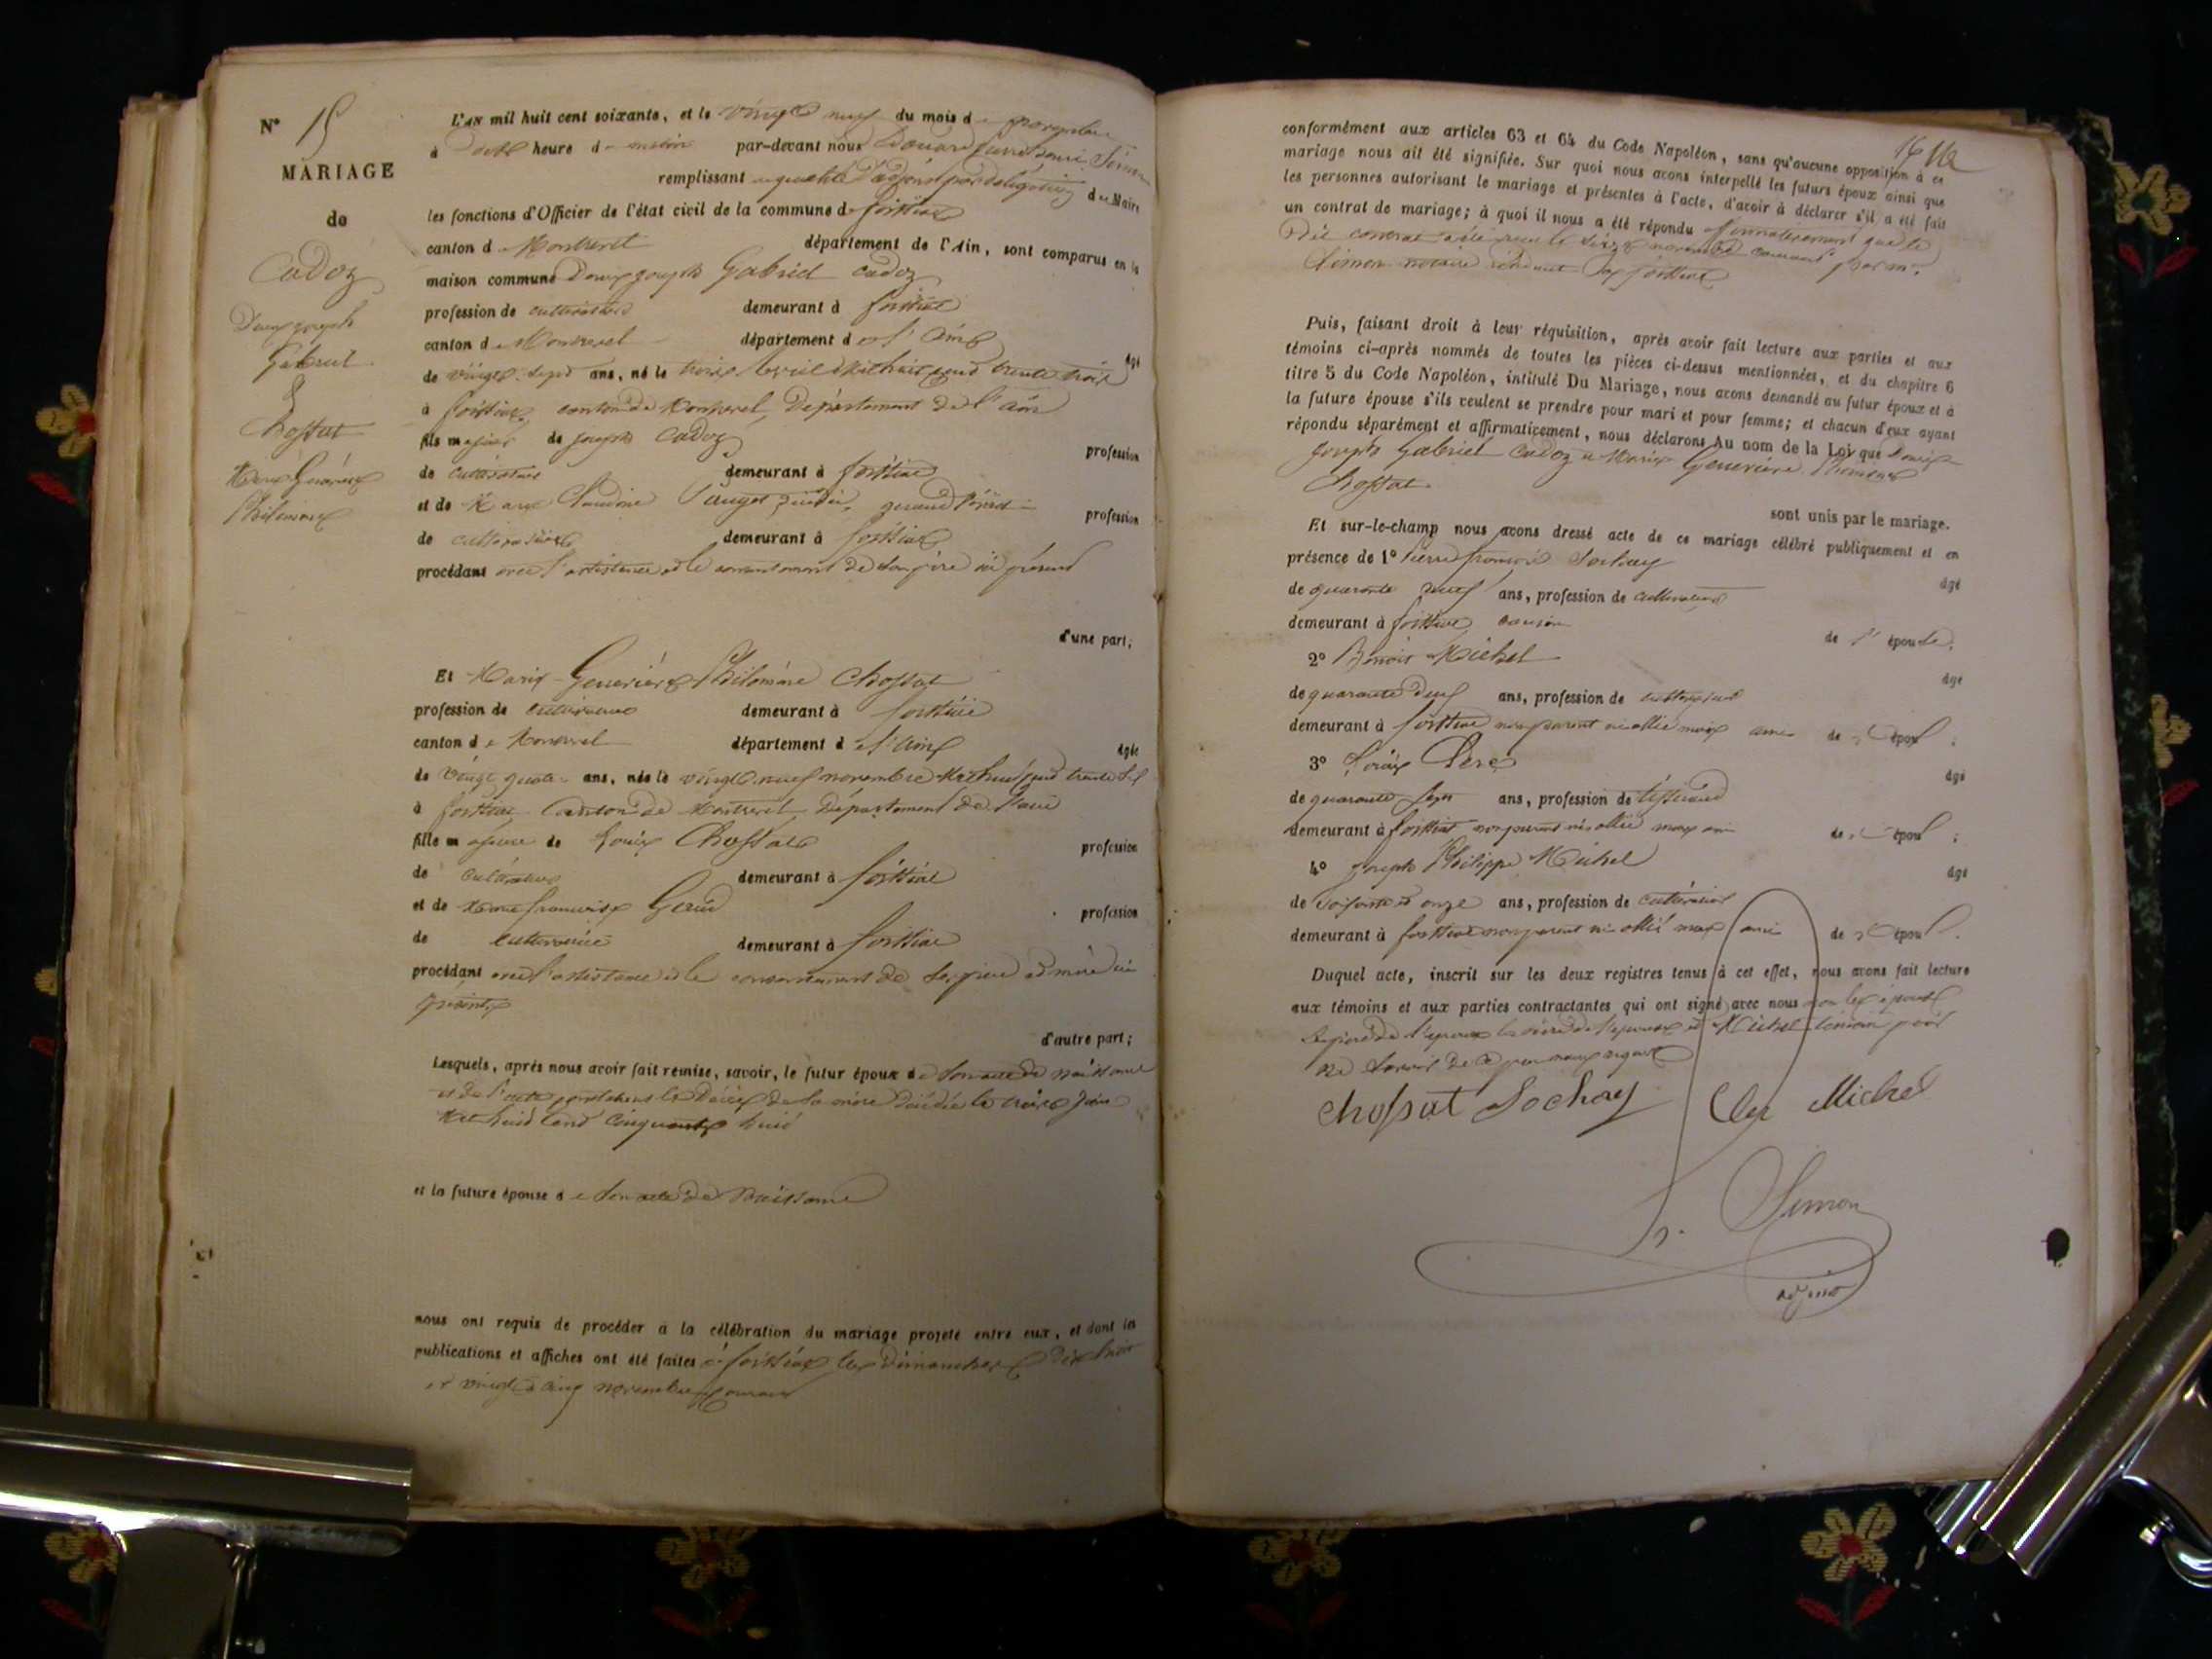 N° 15
MARIAGE
de
Cadoz
Denis joseph
Gabriel
&
Chossat
Marie Geneviève
Philomène
L'AN mil huit cent soixante, et le vingt neuf du mois de novembre
à heure du matin par-devant nous Edouard Simon
remplissant en qualité d'adjoint par délégation du Maire
les fonctions d'Officier de l'état civil de la commune de foissiat
canton de Montrevel département de l'Ain, sont comparus en la
maison commune Denis joseph Gabriel Cadoz
profession de cultivateur demeurant à foissiat
canton de Montrevel département de l'Ain âgé
de vingt-sept ans, né le trois avril mil huit cent trente trois
à foissiat, canton de Montrevel, Département de l'Ain
fils majeur de joseph Cadoz profession
de cultivateur demeurant à foissiat
et de Marie Claudine profession
de cultivatrice demeurant à foissiat
procédant avec l'assistance et le consentement de son père ici présent
d'une part;
Et Marie Geneviève Philomène Chossat
profession de cultivatrice demeurant à foissiat
canton de Montrevel département de l'Ain âgée
de vingt quatre ans, née le vingt neuf novembre mil huit cent trente six
à foissiat Canton de Montrevel Département de l'ain
fille majeure de Louis Chossat profession
de cultivateur demeurant à foissiat
et de Marie françoise profession
de cultivatrice demeurant à foissiat
procédant avec l'assistance et le consentement de ses père et mère ici
présents
d'autre part;
Lesquels, après nous avoir fait remise, savoir, le futur époux de son acte de naissance
et de l'acte de décès de sa mère décédée le treize juin
mil huit cent cinquante huit
et la future épouse de son acte de naissance
nous ont requis de procéder à la célébration du mariage projeté entre eux, et dont les
publications et affiches ont été faites à foissiat les dimanches dix huit
et vingt cinq novembre courant
16
conformément aux articles 63 et 64 du Code Napoléon, sans qu'aucune opposition à ce
mariage nous ait été signifiée. Sur quoi nous avons interpellé les futurs époux ainsi que
les personnes autorisant le mariage et présentes à l'acte, d'avoir à déclarer s'il a été fait
un contrat de mariage; à quoi il nous a été répondu affirmativement que le
dit contrat a été reçu le seize novembre courant par m.
Simon notaire résidant à foissiat
Puis, faisant droit à leur réquisition, après avoir fait lecture aux parties et aux
témoins ci-après nommés de toutes les pièces ci-dessus mentionnées, et du chapitre 6
titre 5 du Code Napoléon, intitulé Du Mariage, nous avons demandé au futur époux et à
la future épouse s'ils veulent se prendre pour mari et pour femme; et chacun d'eux ayant
répondu séparément et affirmativement, nous déclarons Au nom de la Loi que Denis
joseph Gabriel Cadoz et Marie Geneviève Philomène
Chossat
sont unis par le mariage.
Et sur-le-champ nous avons dressé acte de ce mariage célébré publiquement et en
présence de 1° Pierre françois Sochay âgé
de quarante neuf ans, profession de cultivateur
demeurant à foissiat cousin de l'épouse.
2° Benoit Michel âgé
de quarante neuf ans, profession de cultivateur
demeurant à foissiat non parent ni allié mais ami de époux ;
3° Louis âgé
de quarante sept ans, profession de tisserand
demeurant à foissiat non parent ni allié mais ami de époux ;
4° joseph Philippe Michel âgé
de soixante et onze ans, profession de cultivateur
demeurant à foissiat non parent ni allié mais ami de époux.
Duquel acte, inscrit sur les deux registres tenus à cet effet, nous avons fait lecture
aux témoins et aux parties contractantes qui ont signé avec nous non les époux
le père de l'époux la mère de l'épouse et Michel témoin pour
ne savoir de ce
chossat Sochay Michel
Simon
adjoint